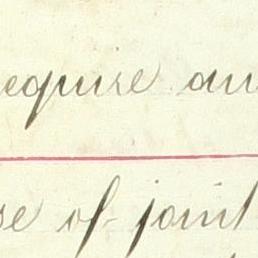 equire an
se of joint